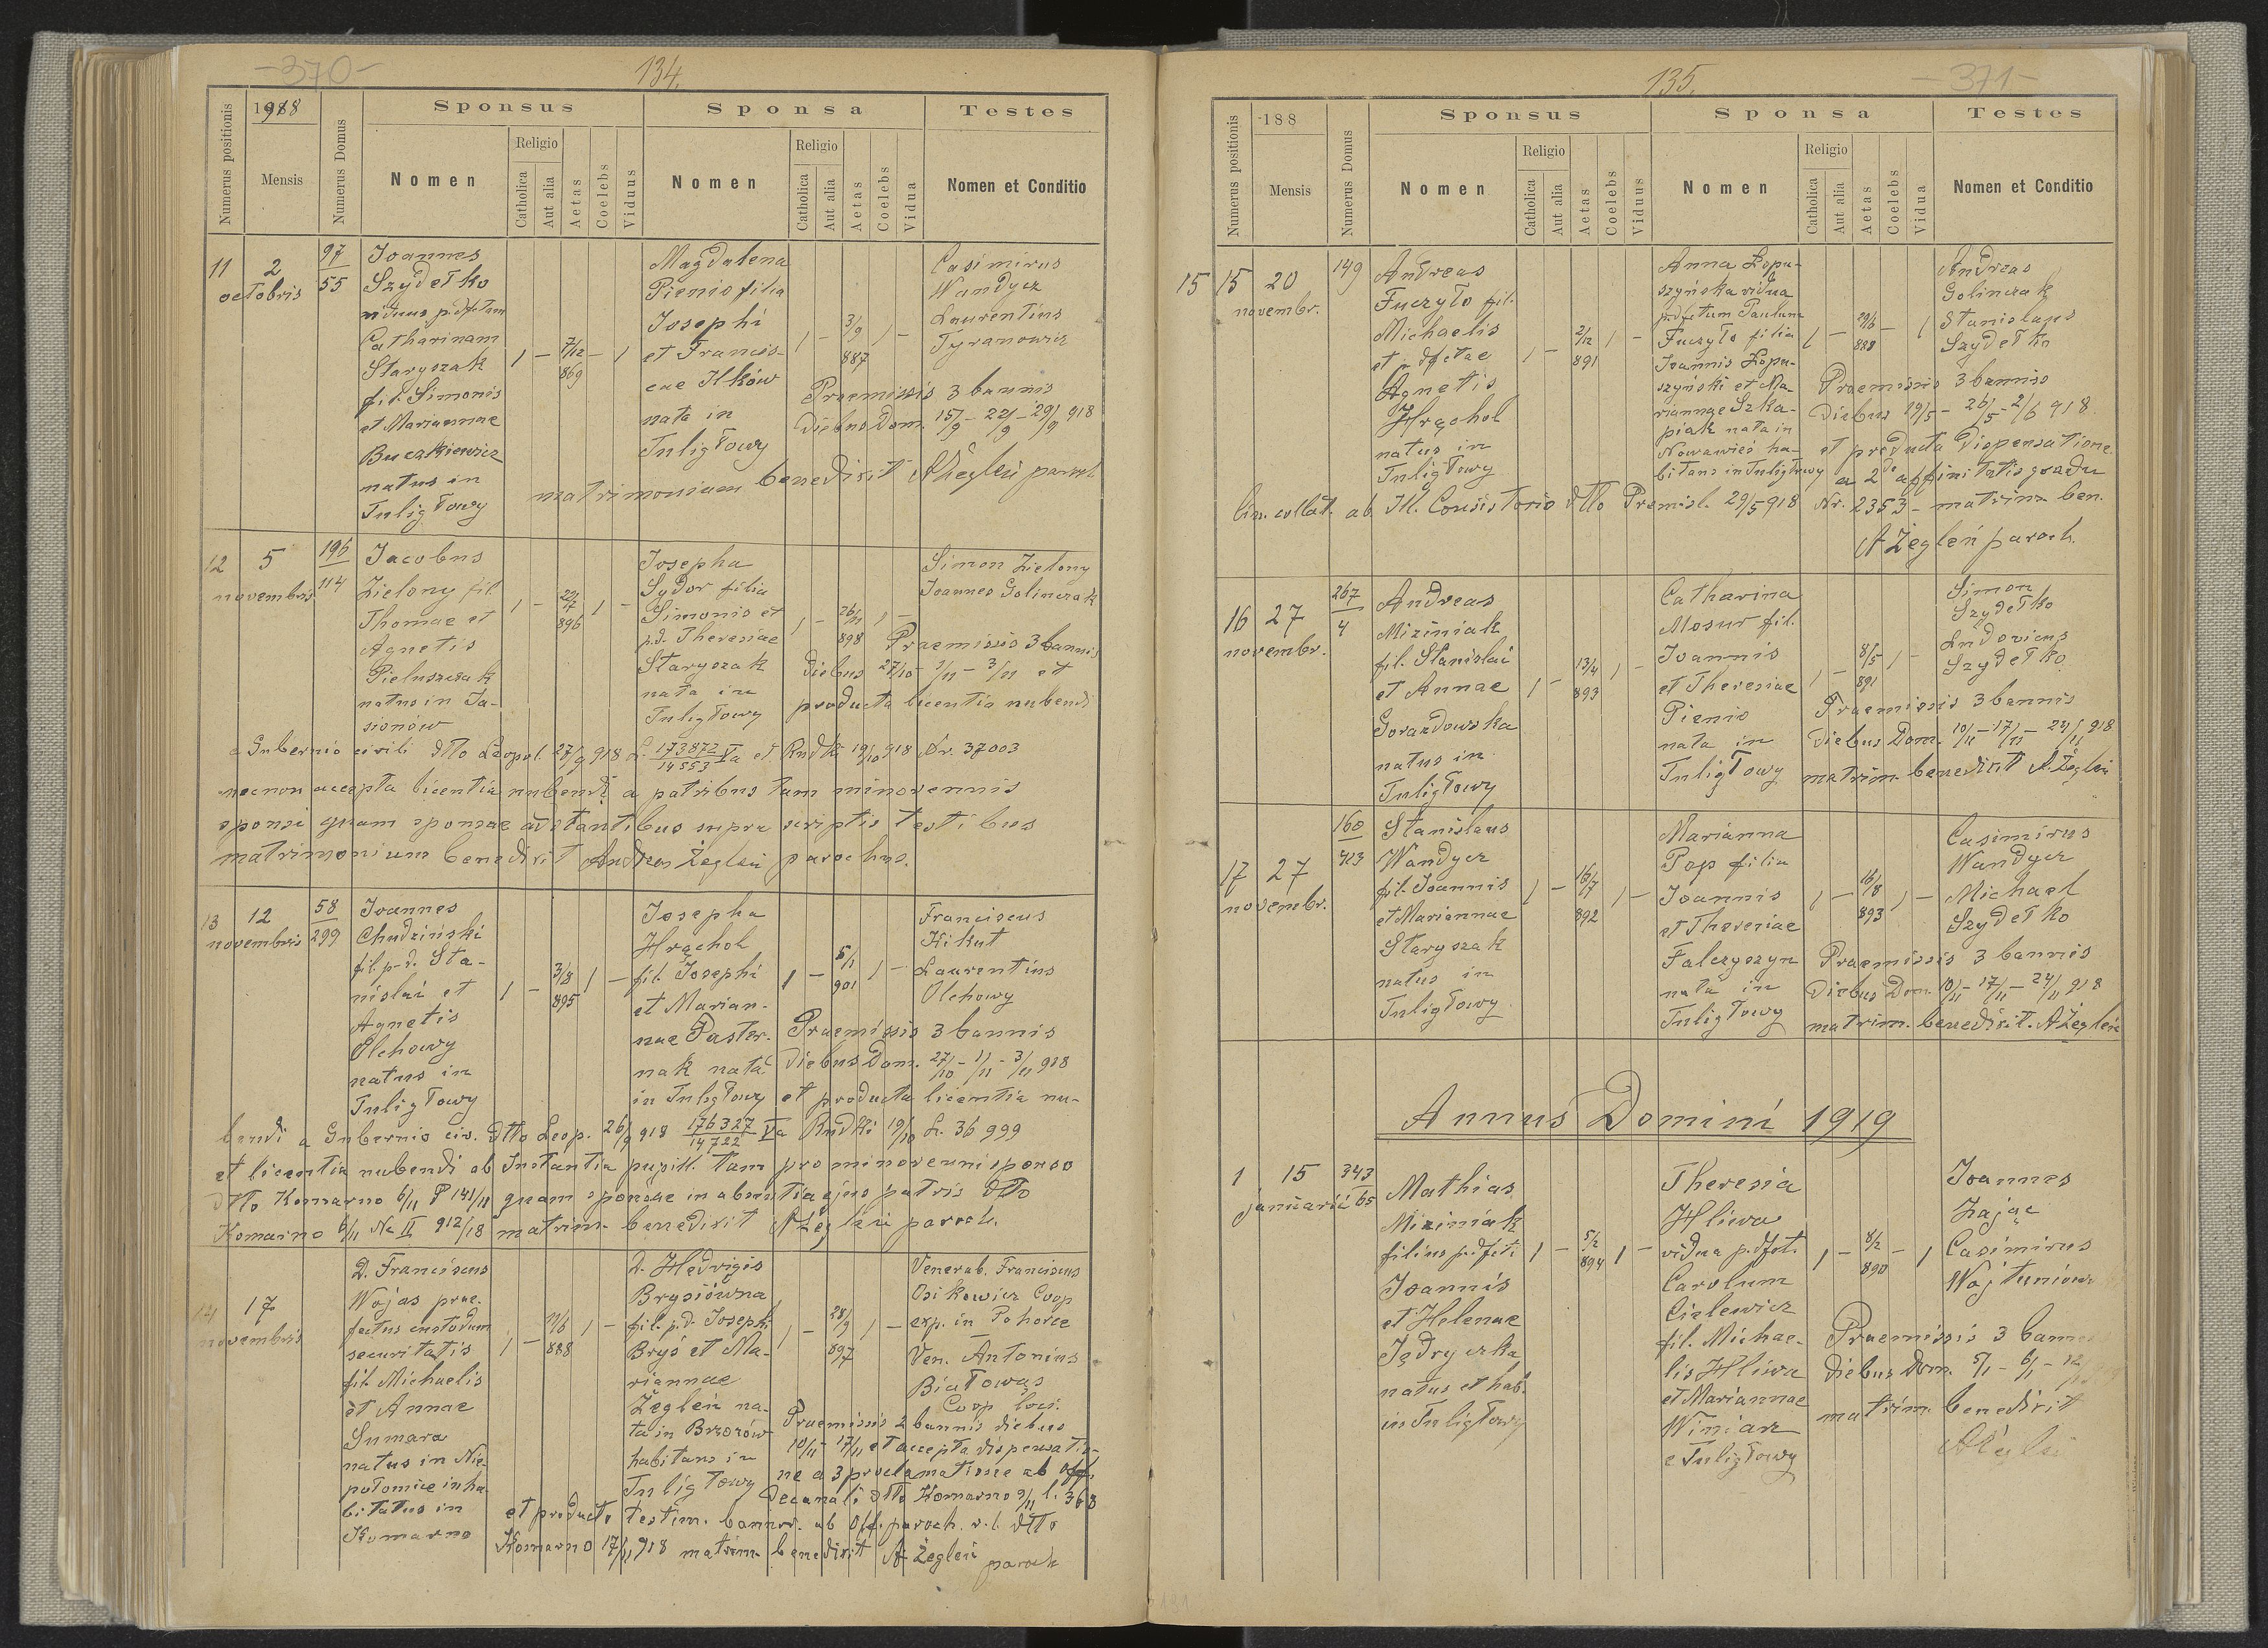 -370-
134.
1918
Numerus positionis
Mensis
Numerus Domus
Sponsus
Sponsa
Testes
Nomen
Religio
Catholica
Aut alia
Aetas
Coelebs
Viduus
Nomen
Religio
Catholica
Aut alia
Aetas
Coelebs
Vidua
Nomen et Conditio
11
2
octobris
97
55
Joannes
Szydełko
viduus p. dfctam
Catharinam
Staryszak
fil. Simonis
et Mariannae
Buczkiewicz
natus in
Tuligłowy
1 –
7/12
869
– 1
Magdalena
Pienio filia
Josephi
et Francis-
cae Ilków
nata in
Tuligłowy
1 –
3/9
887
1 –
Casimirus
Wandycz
Laurentius
Tyranowicz
Praemissis 3 bannis
diebus Dom. 15/9 – 22/9 – 29/9 918
matrimonium benedixit AŻegleń paroch.
12
5
novembris
196
114
Jacobus
Zielony fil.
Thomae et
Agnetis
Pieluszczak
natus in Ja-
sionów
1 –
22/7
896
1 –
Josepha
Sydor filia
Simonis et
p.d. Theresiae
Staryszak
nata in
Tuligłowy
1 –
26/11
898
1 –
Simon Zielony
Joannes Golinczak
Praemissis 3 bannis
diebus 27/10 – 1/11 – 3/11 et
producta licentia nubendi
a Gubernio civili dtto Leopol. 27/9 918 L. 173872/14553 Va et Rudki 19/10 918 Nr. 37003
necnon accepta licentia nubendi a patribus tam minorennis
sponsi quam sponsae adstantibus supra scriptis testibus
matrimonium benedixit Andreas Żegleń parochus.
13
12
novembris
58
299
Joannes
Chudziński
fil. p.d. Sta-
nislai et
Agnetis
Olchowy
natus in
Tuligłowy
1 –
3/8
895
1 –
Josepha
Hrąchol
fil. Josephi
et Marian-
nae Paster-
nak nata
in Tuligłowy
1 –
5/1
901
1 –
Franciscus
Kikut
Laurentius
Olchowy
Praemissis 3 bannis
diebus Dom. 27/10 – 1/11 – 3/11 918
et producta licentia nu-
bendi a Gubernio civ. dtto Leop. 26/9 918 176327/14722 Va Rudki 19/10 L. 36999
et licentia nubendi ab Instantia pupill. tam pro minorenni sponso
dtto Komarno 6/11 P 141/18 quam sponsae in absentia ejus patris dtto
Komarno 6/11 Nc II 912/18 matrim. benedixit AŻegleń paroch.
14
17
novembris
D. Franciscus
Wojas prae-
fectus custodum
securitatis
fil. Michaelis
et Annae
Sumara
natus in Nie-
połomice inha-
bitatus in
Komarno
1 –
888
1 –
D. Hedvigis
Brysiówna
fil. p.d. Josephi
Bryś et Ma-
riannae
Żegleń na-
ta in Brzozów
habitans in
Tuligłowy
1 –
28/9
897
1 –
Venerab. Franciscus
Osikowicz Coop
exp. in Pohorce
Ven. Antonius
Białowąs
Coop loci.
Praemissis 2 bannis diebus
10/11 – 17/11 et accepta dispensatio-
ne a 3 proclamatione ab off.
Decanali dtto Komarno 9/11 l. 368
et producto testim. bannor. ab Off. paroch. r. l. dtto
Komarno 17/11 918 matrim. benedixit A Żegleń
paroch
135.
-371-
188
Numerus positionis
Mensis
Numerus Domus
Sponsus
Sponsa
Testes
Nomen
Religio
Catholica
Aut alia
Aetas
Coelebs
Viduus
Nomen
Religio
Catholica
Aut alia
Aetas
Coelebs
Vidua
Nomen et Conditio
15
15
20
novembr.
149
Andreas
Fuczyło fil.
Michaelis
et p. dfctae
Agnetis
Hrąchol
natus in
Tuligłowy
1 –
2/12
891
1 –
Anna Łopu-
szyńska vidua
p. dfctum Paulum
Fuczyło filia
Joannis Łopu-
szyński et Ma-
riannae Szka-
piak nata in
Nowawieś ha-
bitans in Tuligłowy
1 –
29/6
888
– 1
Andreas
Golinczak
Stanislaus
Szydełko
Praemissis 3 bannis
diebus 19/5 – 26/5 – 2/6 918
et producta dispensatione
a 2do affinitatis gradu
lin. collat. ab Ill. Consistorio dtto Premisl. 29/5 918 Nr. 2353 – matrim ben.
A Żegleń paroch.
16
27
novembr.
267
4
Andreas
Miziniak
fil. Stanislai
et Annae
Gorazdowska
natus in
Tuligłowy
1 –
13/4
893
1 –
Catharina
Mosur fil.
Joannis
et Theresiae
Pienio
nata in
Tuligłowy
1 –
8/5
891
1 –
Simon
Szydełko
Ludovicus
Szydełko
Praemissis 3 bannis
diebus Dom. 10/11 – 17/11 – 24/11 918
matrim. benedixit A. Żegleń
17
27
novembr.
160
413
Stanislaus
Wandycz
fil. Joannis
et Mariannae
Staryszak
natus in
Tuligłowy
1 –
16/7
892
1 –
Marianna
Pop filia
Joannis
et Theresiae
Falczyszyn
nata in
Tuligłowy
1 –
16/8
893
1 –
Casimirus
Wandycz
Michael
Szydełko
Praemissis 3 bannis
diebus Dom. 10/11 – 17/11 – 24/11 918
matrim. benedixit. AŻegleń
Annus Domini 1919
1
15
januarii
343
65
Mathias
Miziniak
filius p. dfcti
Joannis
et Helenae
Jędryczka
natus et hab.
in Tuligłowy
1 –
5/2
894
1 –
Theresia
Hliwa
vidua p. dfct.
Carolum
Cielewicz
fil. Michae-
lis Hliwa
et Mariannae
Winiarz
e Tuligłowy
1 –
8/2
890
– 1
Joannes
Zając
Casimirus
Wojtuniów
Praemissis 3 bannis
diebus Dom. 5/1 – 6/1 – 12/1
matrim. benedixit
AŻegleń